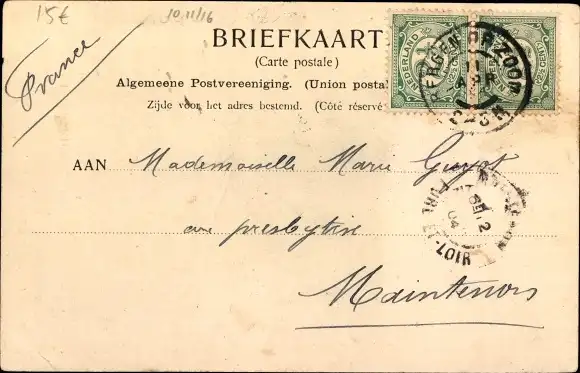 15€
10 11/16
France
BRIEFKAART
(Carte postale)
Algemeene Postvereeniging. (Union posta
Zijde voor het adres bestemd. (Côté réservé
NEDERLAND
BERGEN OP ZOOM
11 APR
AAN Mademoiselle Marie Guyot
au presbytère
Maintenon
EURE-ET-LOIR
04